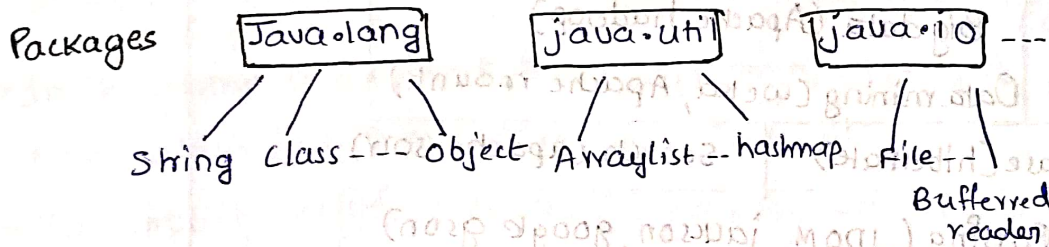 Packages Java.lang java.util java.io ---
String Class --- Object Arraylist -- hashmap File --
Bufferred
reader